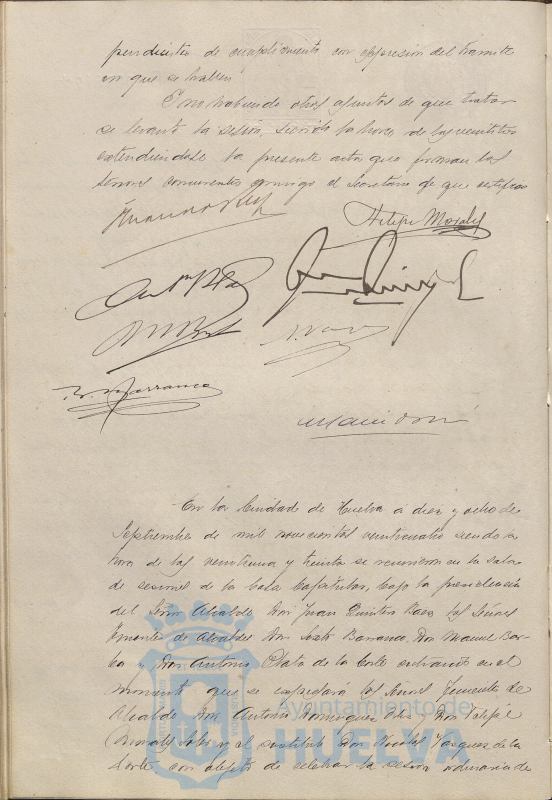 pendientes de cumplimiento con expresión del trámite
en que se hallen
Y no habiendo otros asuntos de que tratar
se levantó la sesión, siendo la hora de las veintitrés
extendiéndose la presente acta que firman los
Señores concurrentes conmigo el Secretario de que certifico
Felipe Morales
Barranco
En la Ciudad de Huelva a diez y ocho de
Septiembre de mil novecientos veinticuatro siendo la
hora de las veintiuna y treinta se reunieron en la sala
de sesiones de la Casa Capitular, bajo la presidencia
del Señor Alcalde Don Juan Quintero Baez los Señores
Teniente de Alcalde Don Sixto Barranco, Don Manuel Bar
ba y Don Antonio Plata de la Corte entrando en el
momento que se expresara los Señores Tenientes de
Alcalde Don Antonio Dominguez Ortiz y Don Felipe
Morales y el sustituto Don Nicolas Vazquez de la
Corte con objeto de celebrar la sesión ordinaria de
Ayuntamiento de
HUELVA